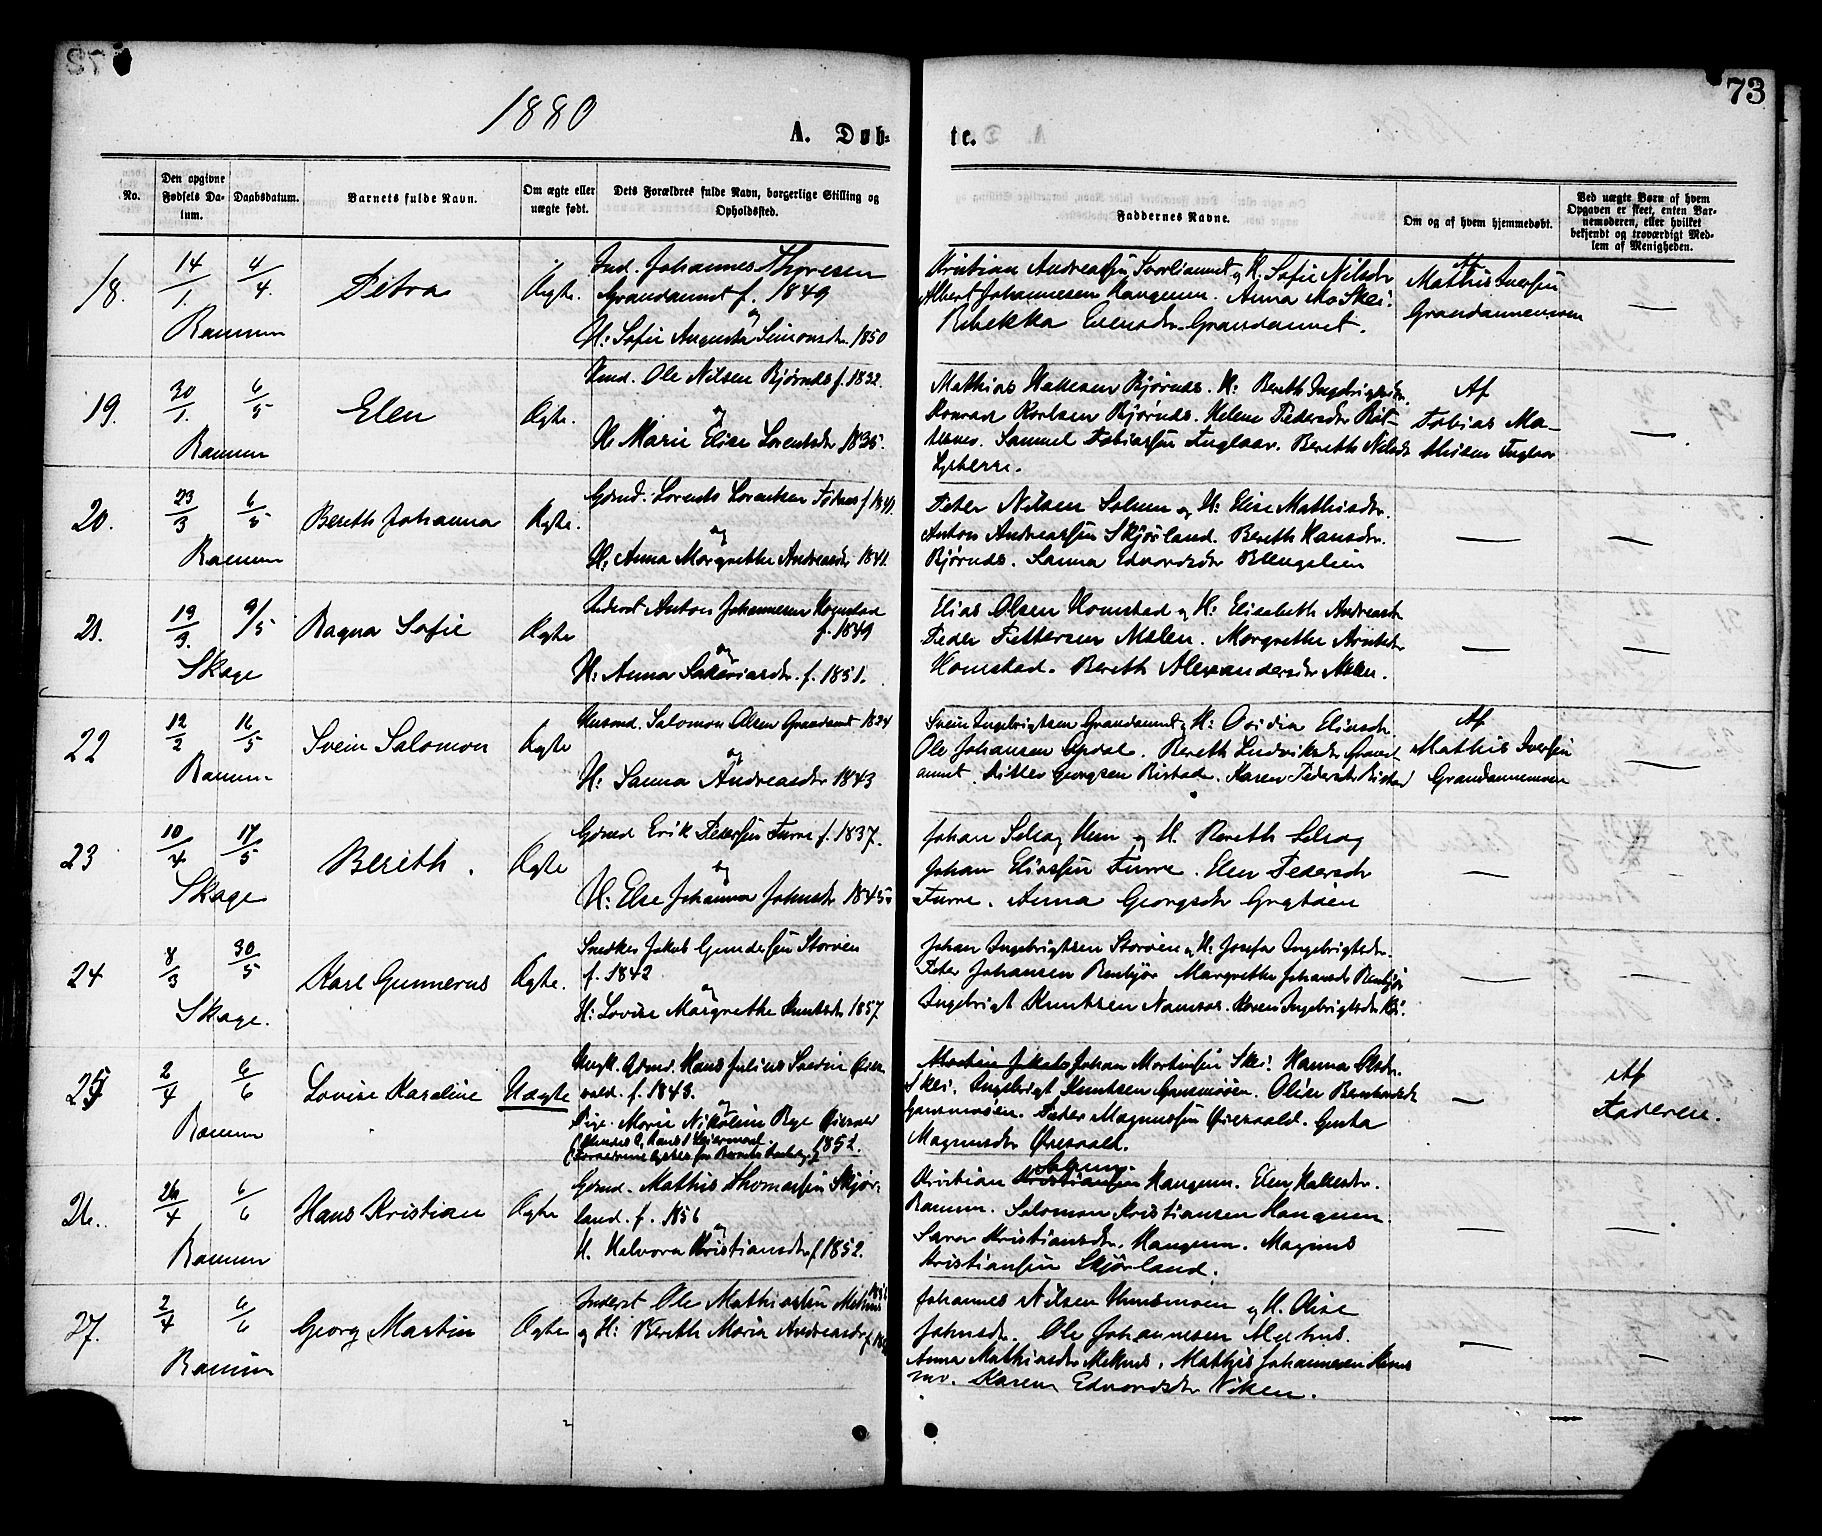 73
1880
A. Døb-
te.
No.
Den opgivne Fødsels Da-
tum.
Daabsdatum.
Barnets fulde Navn.
Om ægte eller
uægte født.
Dets Forældres fulde Navn, borgerlige Stilling og
Opholdssted.
Faddernes Navne.
Om og af hvem hjemmedøbt.
Ved uægte Børn af hvem
Opgaven er skeet, enten Bar-
nemoderen, eller hvilket
bekjendt og troværdigt Med-
lem af Menigheden.
18. 14/1. 4/4. Petra Ægte.
Ranum
Ind. Johannes Thoresen
Grandaunet f. 1849
og
H: Sofie Augusta Simonsdr. 1850
Kristian Andreassen og H. Sofie Nilsdr
Albert Johannesen Haugum. Anna Mo Skei.
Rebekka Evensdr. Grandaunet.
Af
Mathis Iversen
Grandaunemoen
—
19. 30/1. 6/5 Elen Ægte.
Ranum
Ole Nilsen Bjørnes f. 1832.
og
H. Marie Elise Lorentsdr 1835.
Mathias Hallesen Bjørnes. H: Bereth Ingebrigtsdr.
Konrad Karlsen Bjørnes. Helene Pedersdr
Samuel Tobiassen Fuglaar. Bereth Nilsdr
Af
Tobias Ma-
thisen Fuglaar
—
20. 23/3 6/5 Bereth Johanna Ægte.
Ranum
Gdmd. Lorents Lorentsen f. 1841.
og
H: Anna Margrethe Andreasdr 1841.
Peter Nilsen Solum og H: Elise Mathisdr.
Anton Andreassen Skjørland. Bereth Hansdr.
Bjørnes. Sanna Edvardsdr
—
—
21. 19/3. 9/5 Ragna Sofie Ægte
Skage
Inderst Anton Johannesen Homstad
f. 1849
og
H: Anna Sakariasdr. f. 1851.
Elias Olsen Homstad og H: Elisabeth Andreasdr
Peder Pettersen Melen. Margrethe
Homstad. Bereth Alexandersdr Melen.
—
—
22 12/2 16/5 Svein Salomon Ægte
Ranum
Husmd. Salomon Olsen Grandaunet 1824
og
H: Sanna Andreasdr 1843
Svein Ingebrigtsen Grandaunet og H: Ovidia Eliasdr.
Ole Johansen Opdal. Bereth Ludviksdr Grand-
aunet. Ditlev Georgsen Ristad. Karen Pedersdr Ristad
Af
Mathis Iversen
Grandaunemoen
—
23 10/4 17/5 Bereth. Ægte
Skage
Gdmd Erik Pedersen Furre f. 1837.
og
H: Else Johanna Johnsdr 1845
Johan Selvog Hun og H. Bereth Selvog
Johan Eliassen Furre. Elen Pedersdr
Furre. Anna Georgsdr
—
—
24 8/3 30/5 Karl Gunnerus Ægte.
Skage.
Snedker Jakob Gundersen Storøien
f. 1842
og
H: Lovise Margrethe Knutsdr 1857
Johan Ingebrigtsen Storøien og H: Josefa Ingebrigtsdr.
Peter Johansen Renbjør Margrethe Johansdr Renbjør
Ingebrigt Knutsen Namsos. Karen Ingebrigtsdr
—
—
25 2/4 6/6 Lovise Karoline Uægte
Ranum
Ungk. Gdmd. Hans Julius Severin Øies-
vold. f. 1843.
og
Pige Marie Nikoline Øiesvold
1852.
Johan Martinsen Skei. Hanna Olsdr.
Skei. Ingebrigt Knutsen Gansmoen. Oline Bernhardsdr
Gansmoen. Peder Magnussen Øiesvold. Gusta
Magnusdr Øiesvold.
—
Af
Faderen.
26. 26/4 6/6 Hans Kristian Ægte
Ranum
Gdmd. Mathis Thomassen Skjør-
land. f. 1856
og
H. Halvora Kristiansdr f 1852.
Kristian Kristiansen Haugum. Elen Hallesdr.
Ranum. Salomon Kristiansen Haugum.
Sara Kristiansdr. Haugum. Magnus
Kristiansen Skjørland.
—
—
27. 2/4 6/6 Georg Martin Ægte
Ranum
Inderst Ole Mathiassen
og H: Bereth Maria Andreasdr
Johannes Nilsen Hunsmoen og H. Olise
Johnsdr. Ole Johannesen
Anna Mathiasdr. Mathis Johannesen
Karen Edvardsdr Viken.
—
—